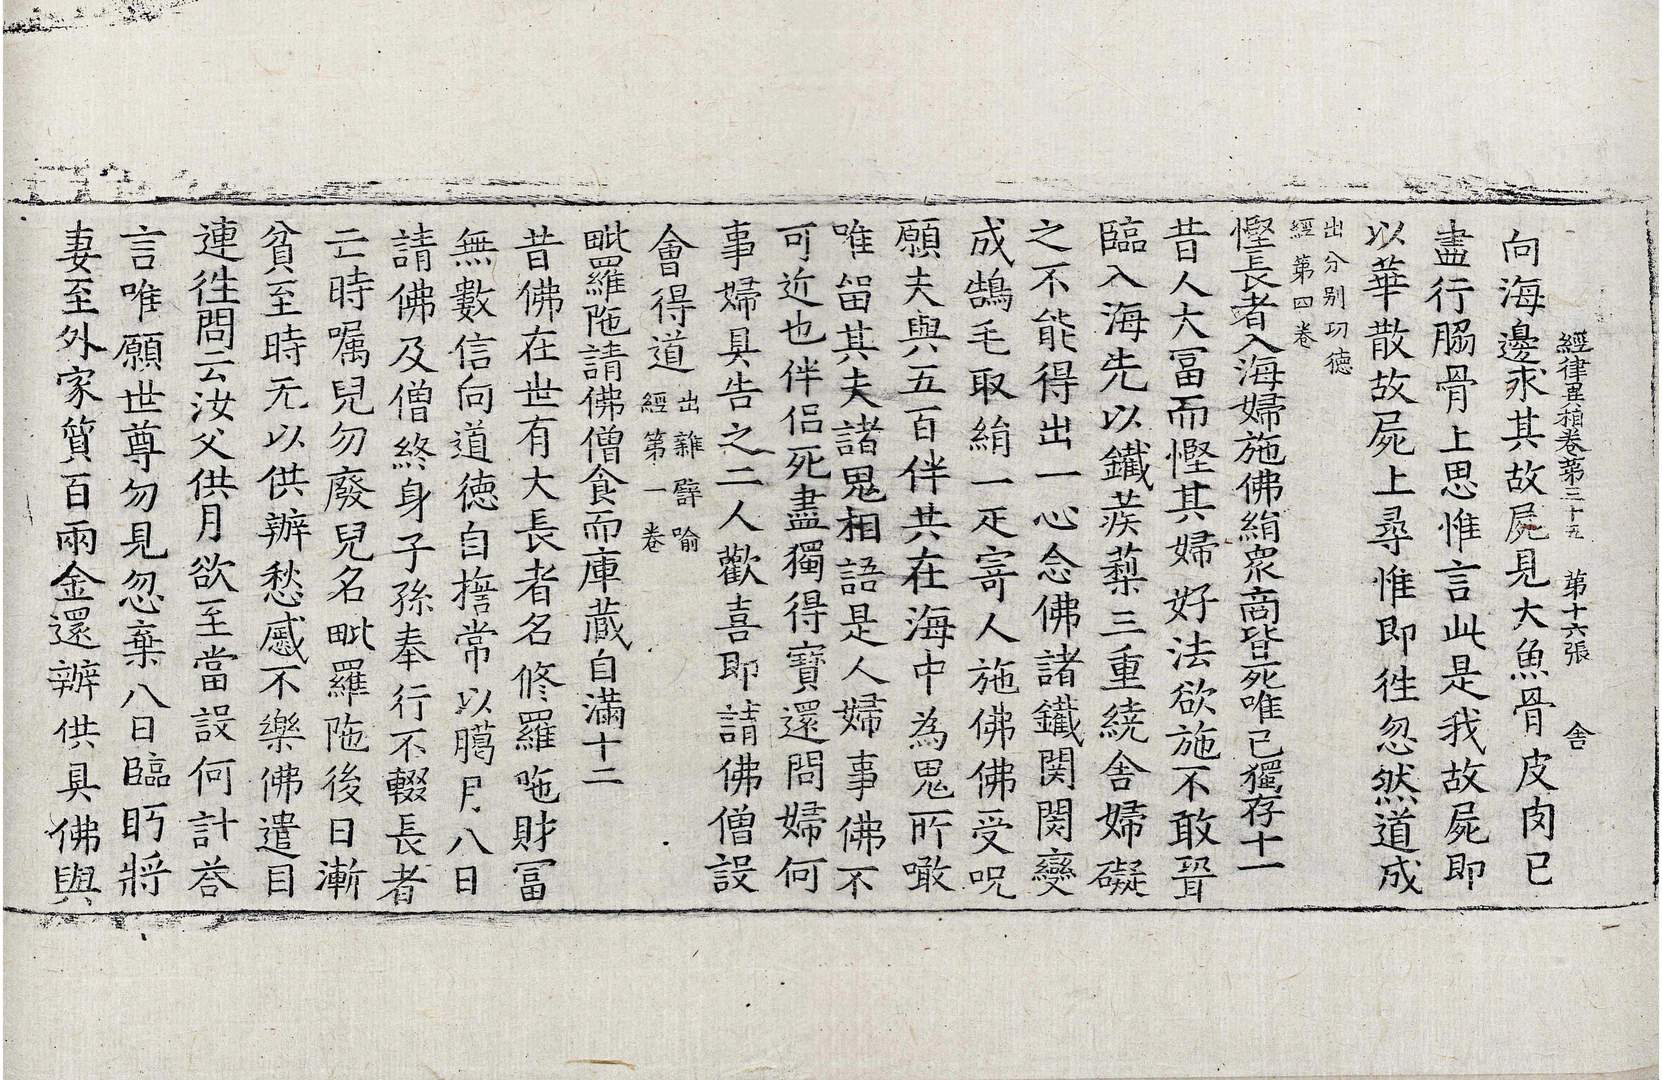 經律異相卷第三十五　第十六張　舍
向海邊求其故屍見大魚骨皮肉已
盡行脇骨上思惟言此是我故屍即
以華散故屍上尋惟即徃忽然道成
出分别功德
經第四卷
慳長者入海婦施佛絹衆商皆死唯已獨存十一
昔人大冨而慳其婦好法欲施不敢聟
臨入海先以鐵蒺䔧三重繞舍婦礙
之不能得出一心念佛諸鐵関関變
成鵠毛取絹一疋寄人施佛佛受呪
願夫與五百伴共在海中為鬼所噉
唯留其夫諸鬼相語是人婦事佛不
可近也伴侣死盡獨得寶還問婦何
事婦具告之二人歡喜即請佛僧設
會得道
出雜譬喻
經第一卷
毗羅陁請佛僧食而庫藏自滿十二
昔佛在世有大長者名修羅陁財冨
無數信向道徳自誓常以臈月八日
請佛及僧終身子孫奉行不輟長者
亡時嘱兒勿廢兒名毗羅陁後日漸
貧至時无以供辦愁慼不樂佛遣目
連徃問云汝父供月欲至當設何計荅
言唯願世尊勿見忽棄八日臨眄將
妻至外家質百兩金還辦供具佛與